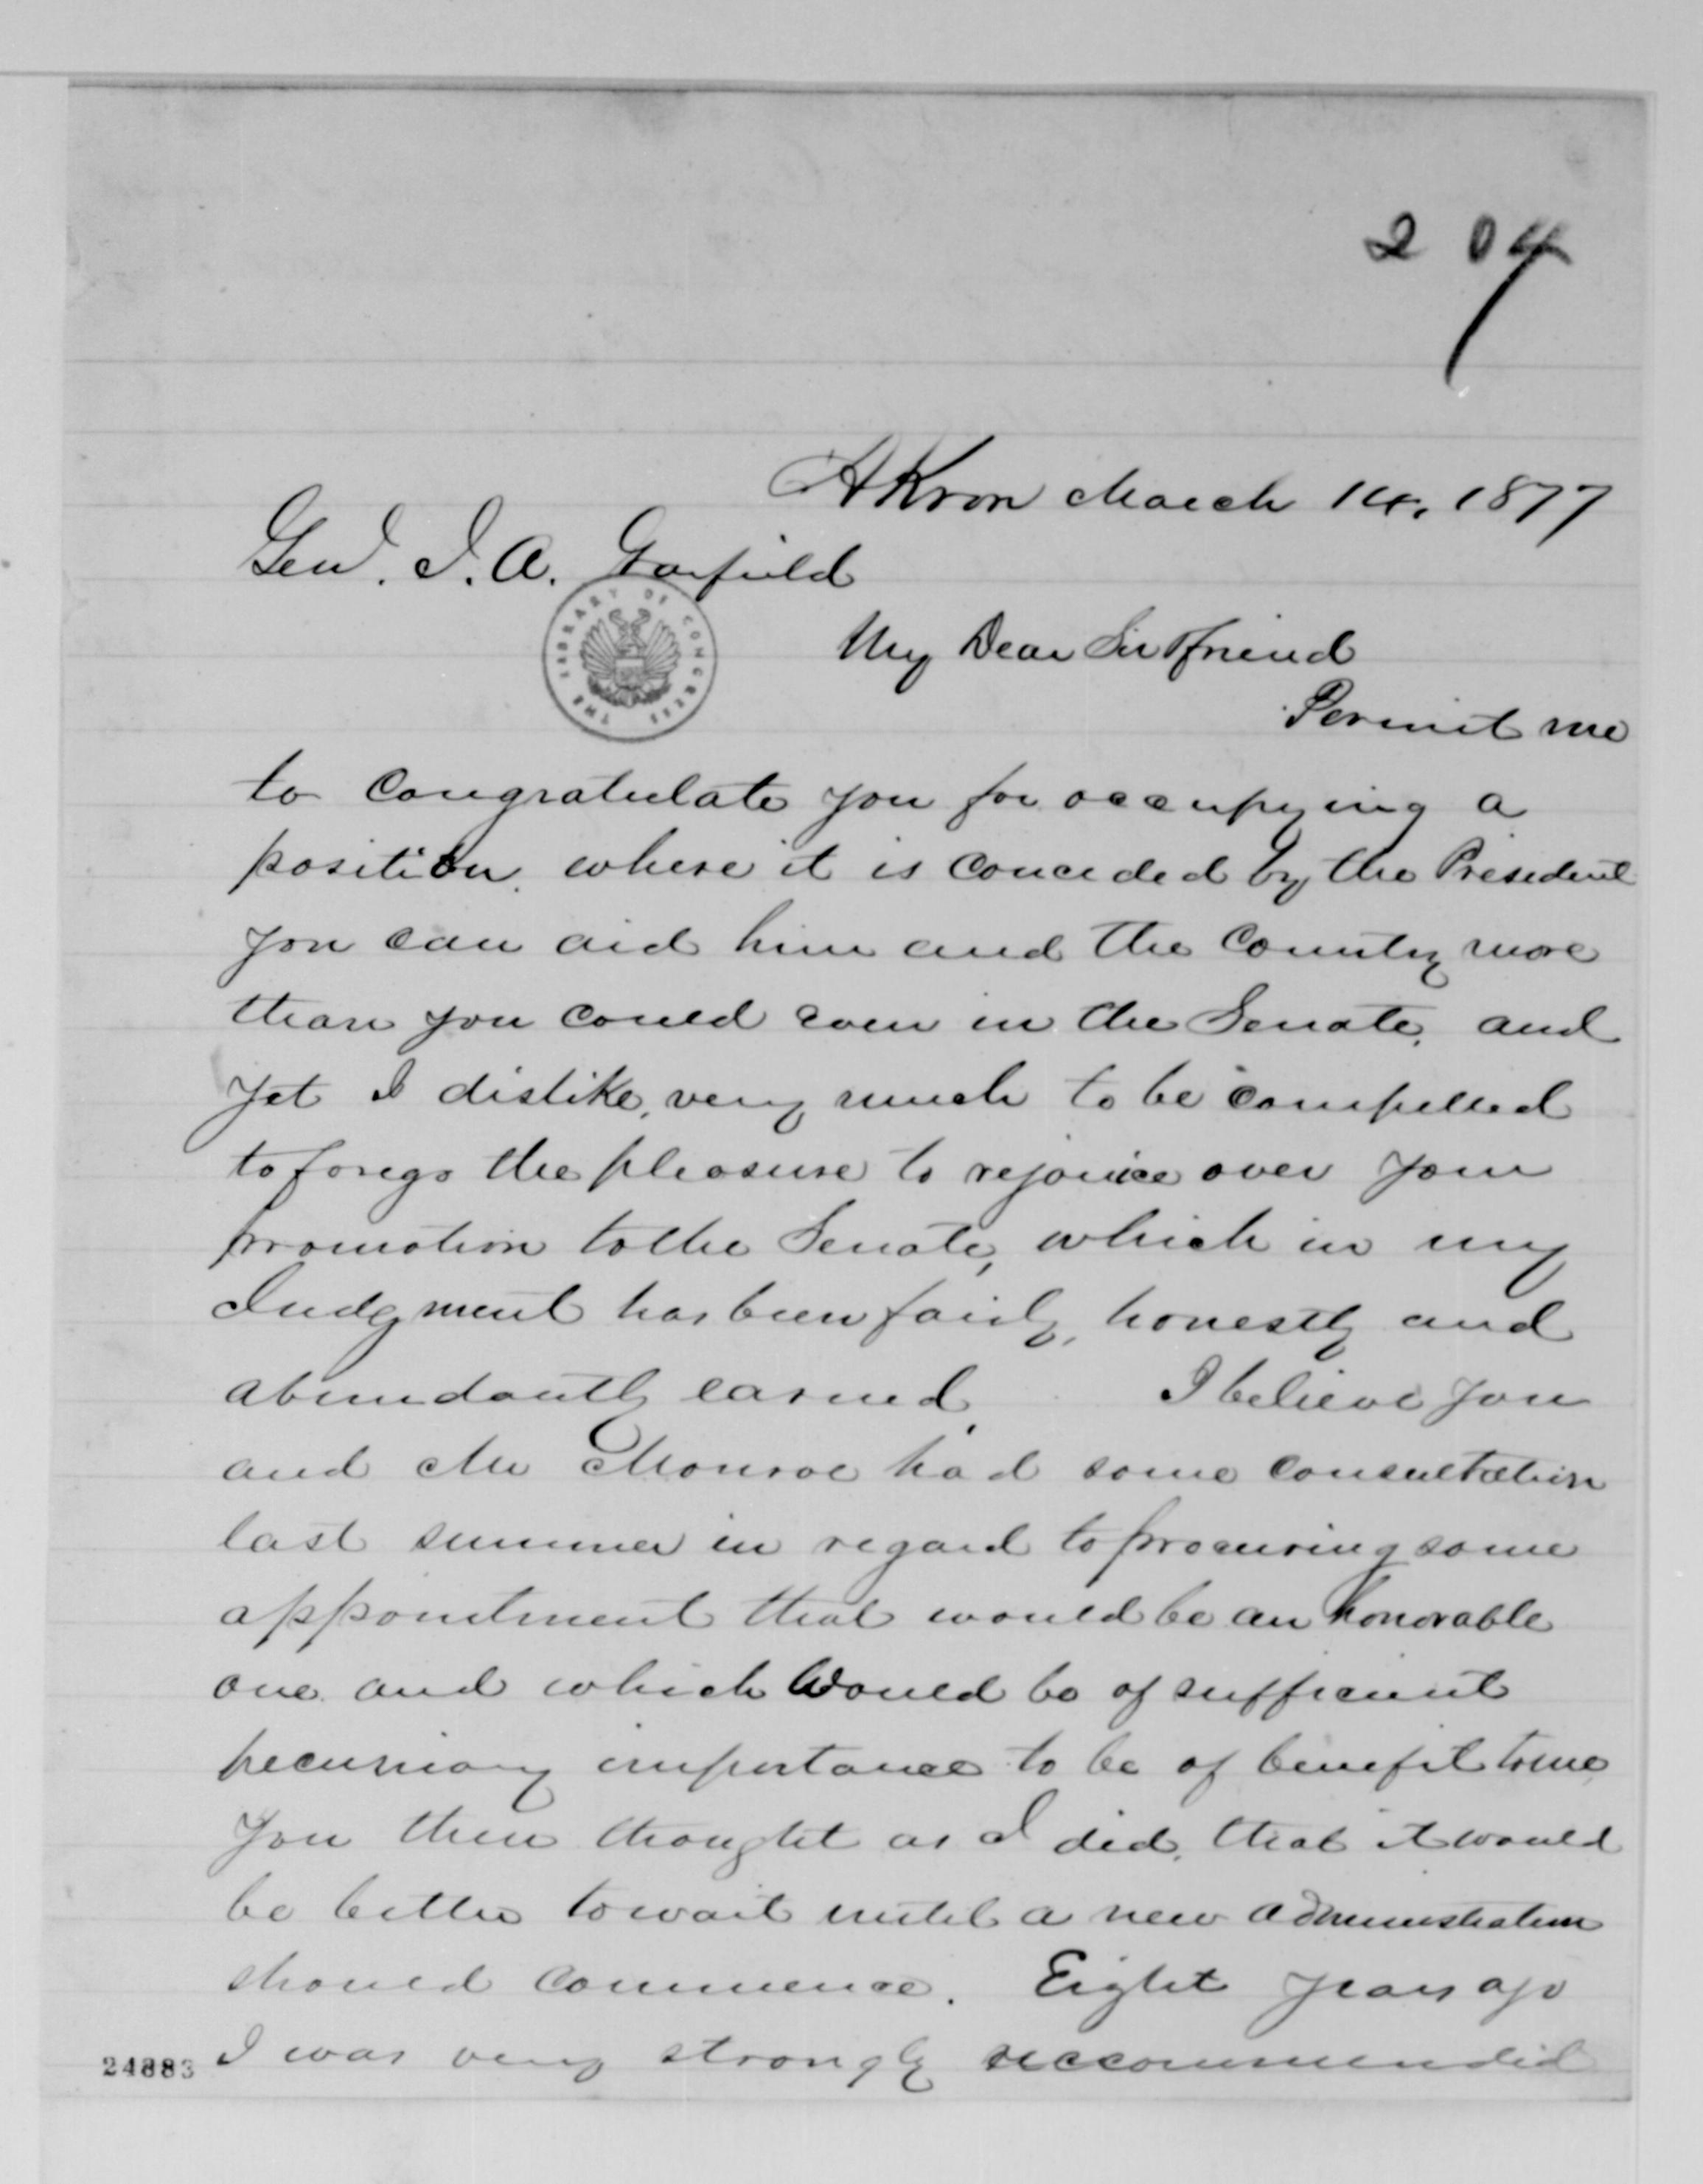 204
Akron March 14, 1877
Genl. J. A. Garfield
THE LIBRARY OF CONGRESS
My Dear Sir & friend
Permit me
to congratulate you for occupying a
position, where it is conceded by the President
you can aid him and the Country more
than you could even in the Senate, and
yet I dislike, very much to be compelled
to forego the pleasure to rejoice over your
promotion to the Senate, which in my
Judgment has been fairly, honestly and
abundantly earned. I believe you
and Mr Monroe had some consultation
last summer in regard to procuring some
appointment that would be an honorable
one and which would be of sufficient
pecuniary importance to be of benefit to me
You then thought as I did, that it would
be better to wait until a new administration
should commence. Eight years ago
I was very strongly reccommended
24883